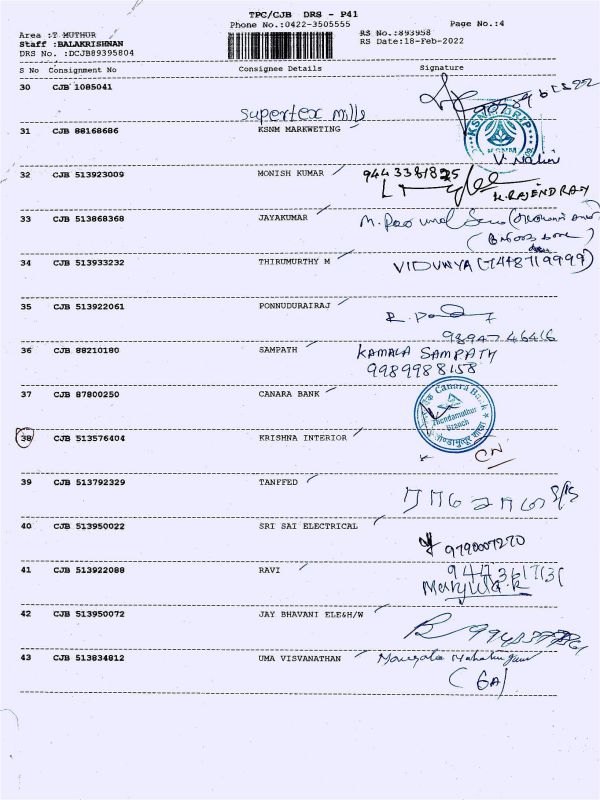 TPC/CJB DRS - P41
Phone No.:0422-3505555 Page No.:4
Area :T MUTHUR RS No.:893958
Staff :BALAKRISHNAN RS Date:18-Feb-2022
DRS No. :DCJB89395804
S No Consignment No Consignee Details Signature
30 CJB 1085041
supertex mills
31 CJB 88168686 KSNM MARKWETING
KSNM DRIP
KSNM
V. Nalini
32 CJB 513923009 MONISH KUMAR 9443381825
K. RAJENDRAN
33 CJB 513868368 JAYAKUMAR
34 CJB 513933232 THIRUMURTHY M VIDUNYA (7448719999)
35 CJB 513922061 PONNUDURAIRAJ
9894746416
36 CJB 88210180 SAMPATH KAMALA SAMPATH
9989988158
37 CJB 87800250 CANARA BANK
Canara Bank
Thondamuthur
Branch
38 CJB 513576404 KRISHNA INTERIOR
CN
39 CJB 513792329 TANFFED
40 CJB 513950022 SRI SAI ELECTRICAL
9790007270
41 CJB 513922088 RAVI
Manjula.R
42 CJB 513950072 JAY BHAVANI ELE&H/W
43 CJB 513834812 UMA VISVANATHAN